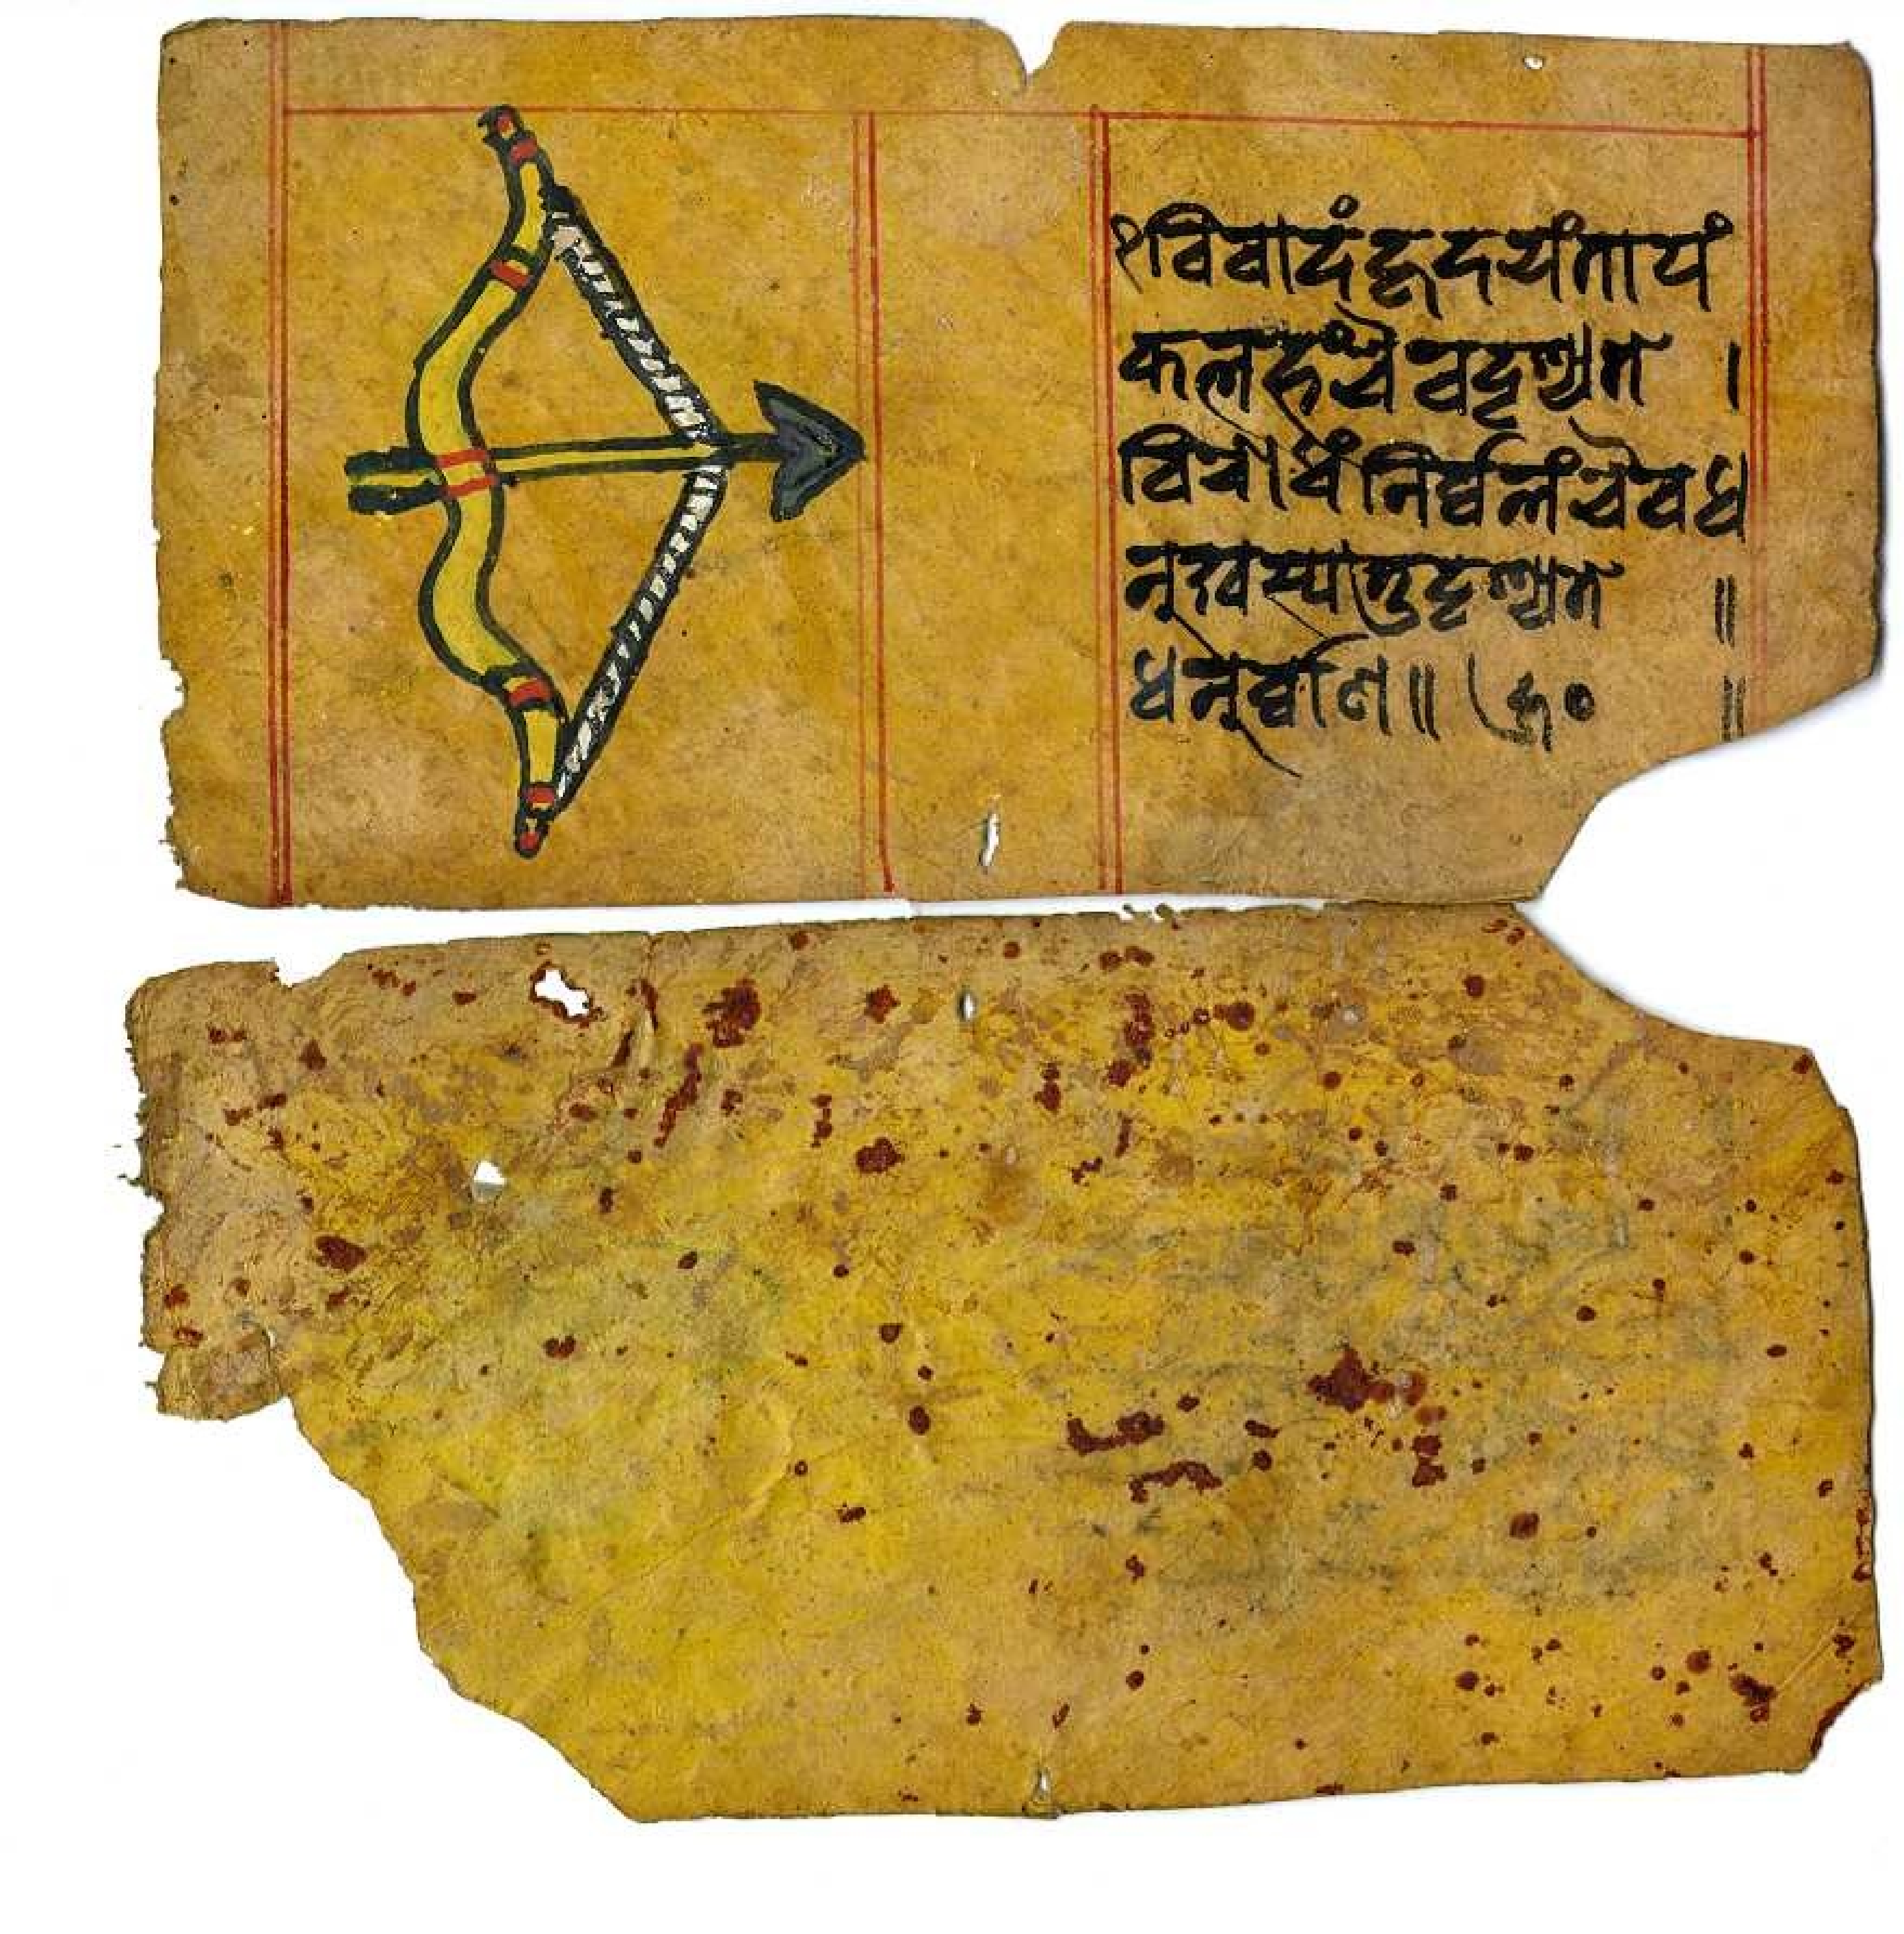 १विवादंहृदयंतायं
कलहंचैवदृश्यत ।
विवाधंनिर्घलंचैवध
नूरवस्यातुदृश्यत ॥
धनूर्व्वाण॥ ॥